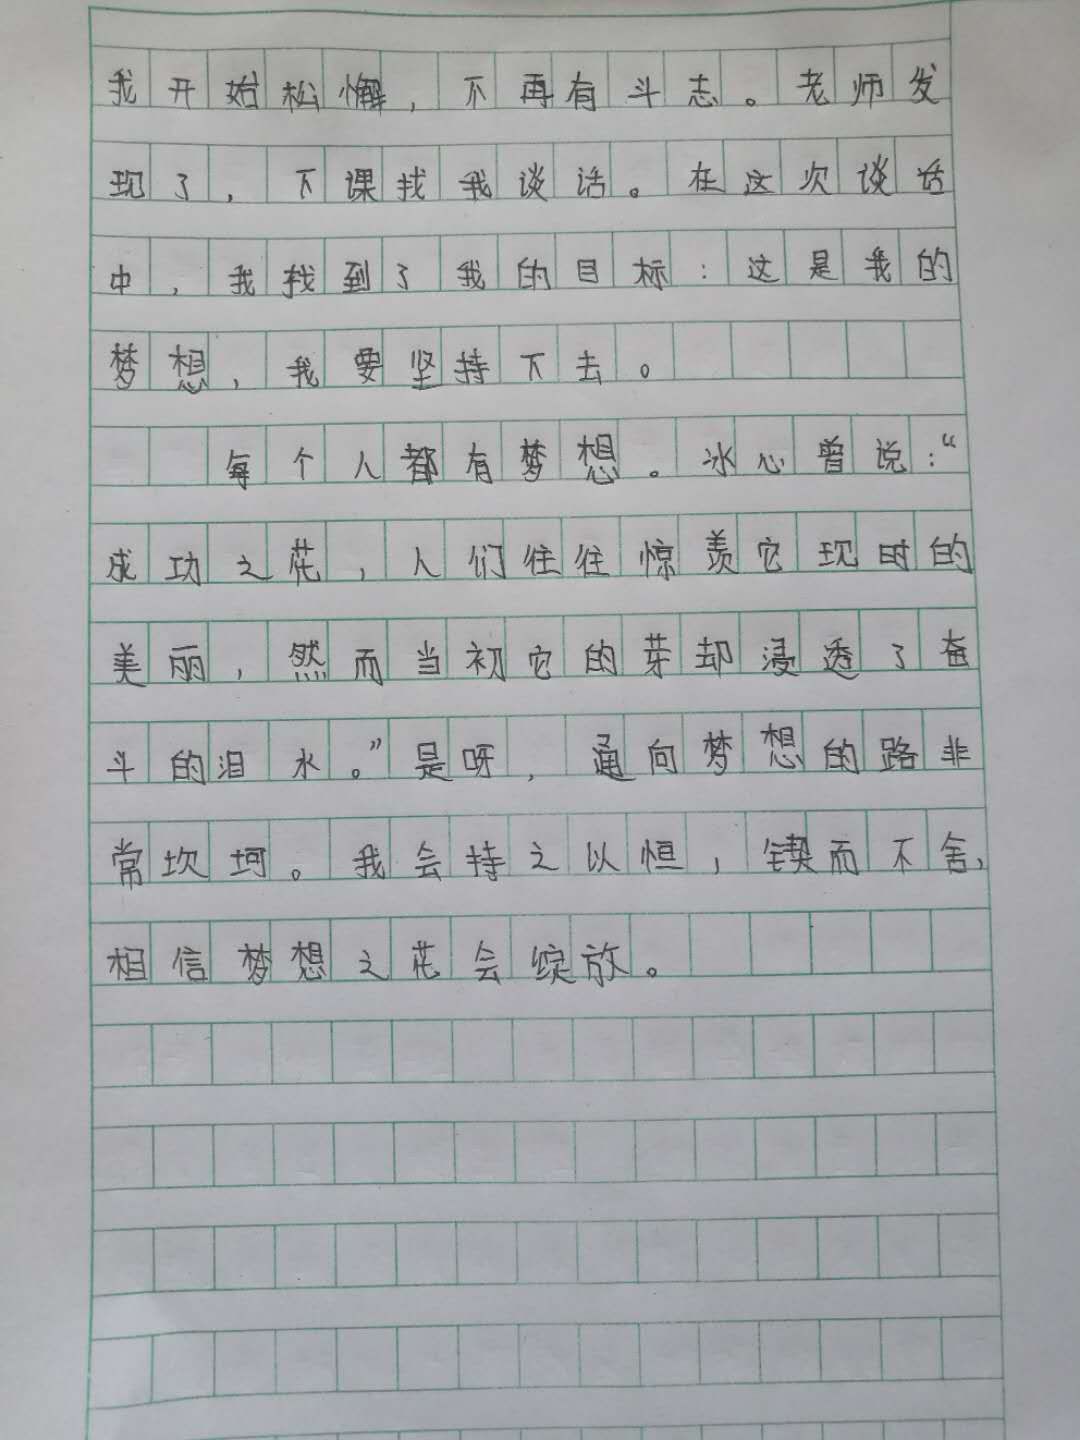 我开始松懈，不再有斗志。老师发
现了，下课找我谈话。在这次谈话
中，我找到了我的目标：这是我的
梦想，我要坚持下去。
每个人都有梦想。冰心曾说：“
成功之花，人们往往惊羡它现时的
美丽，然而当初它的芽却浸透了奋
斗的泪水。”是呀，通向梦想的路非
常坎坷。我会持之以恒，锲而不舍，
相信梦想之花会绽放。